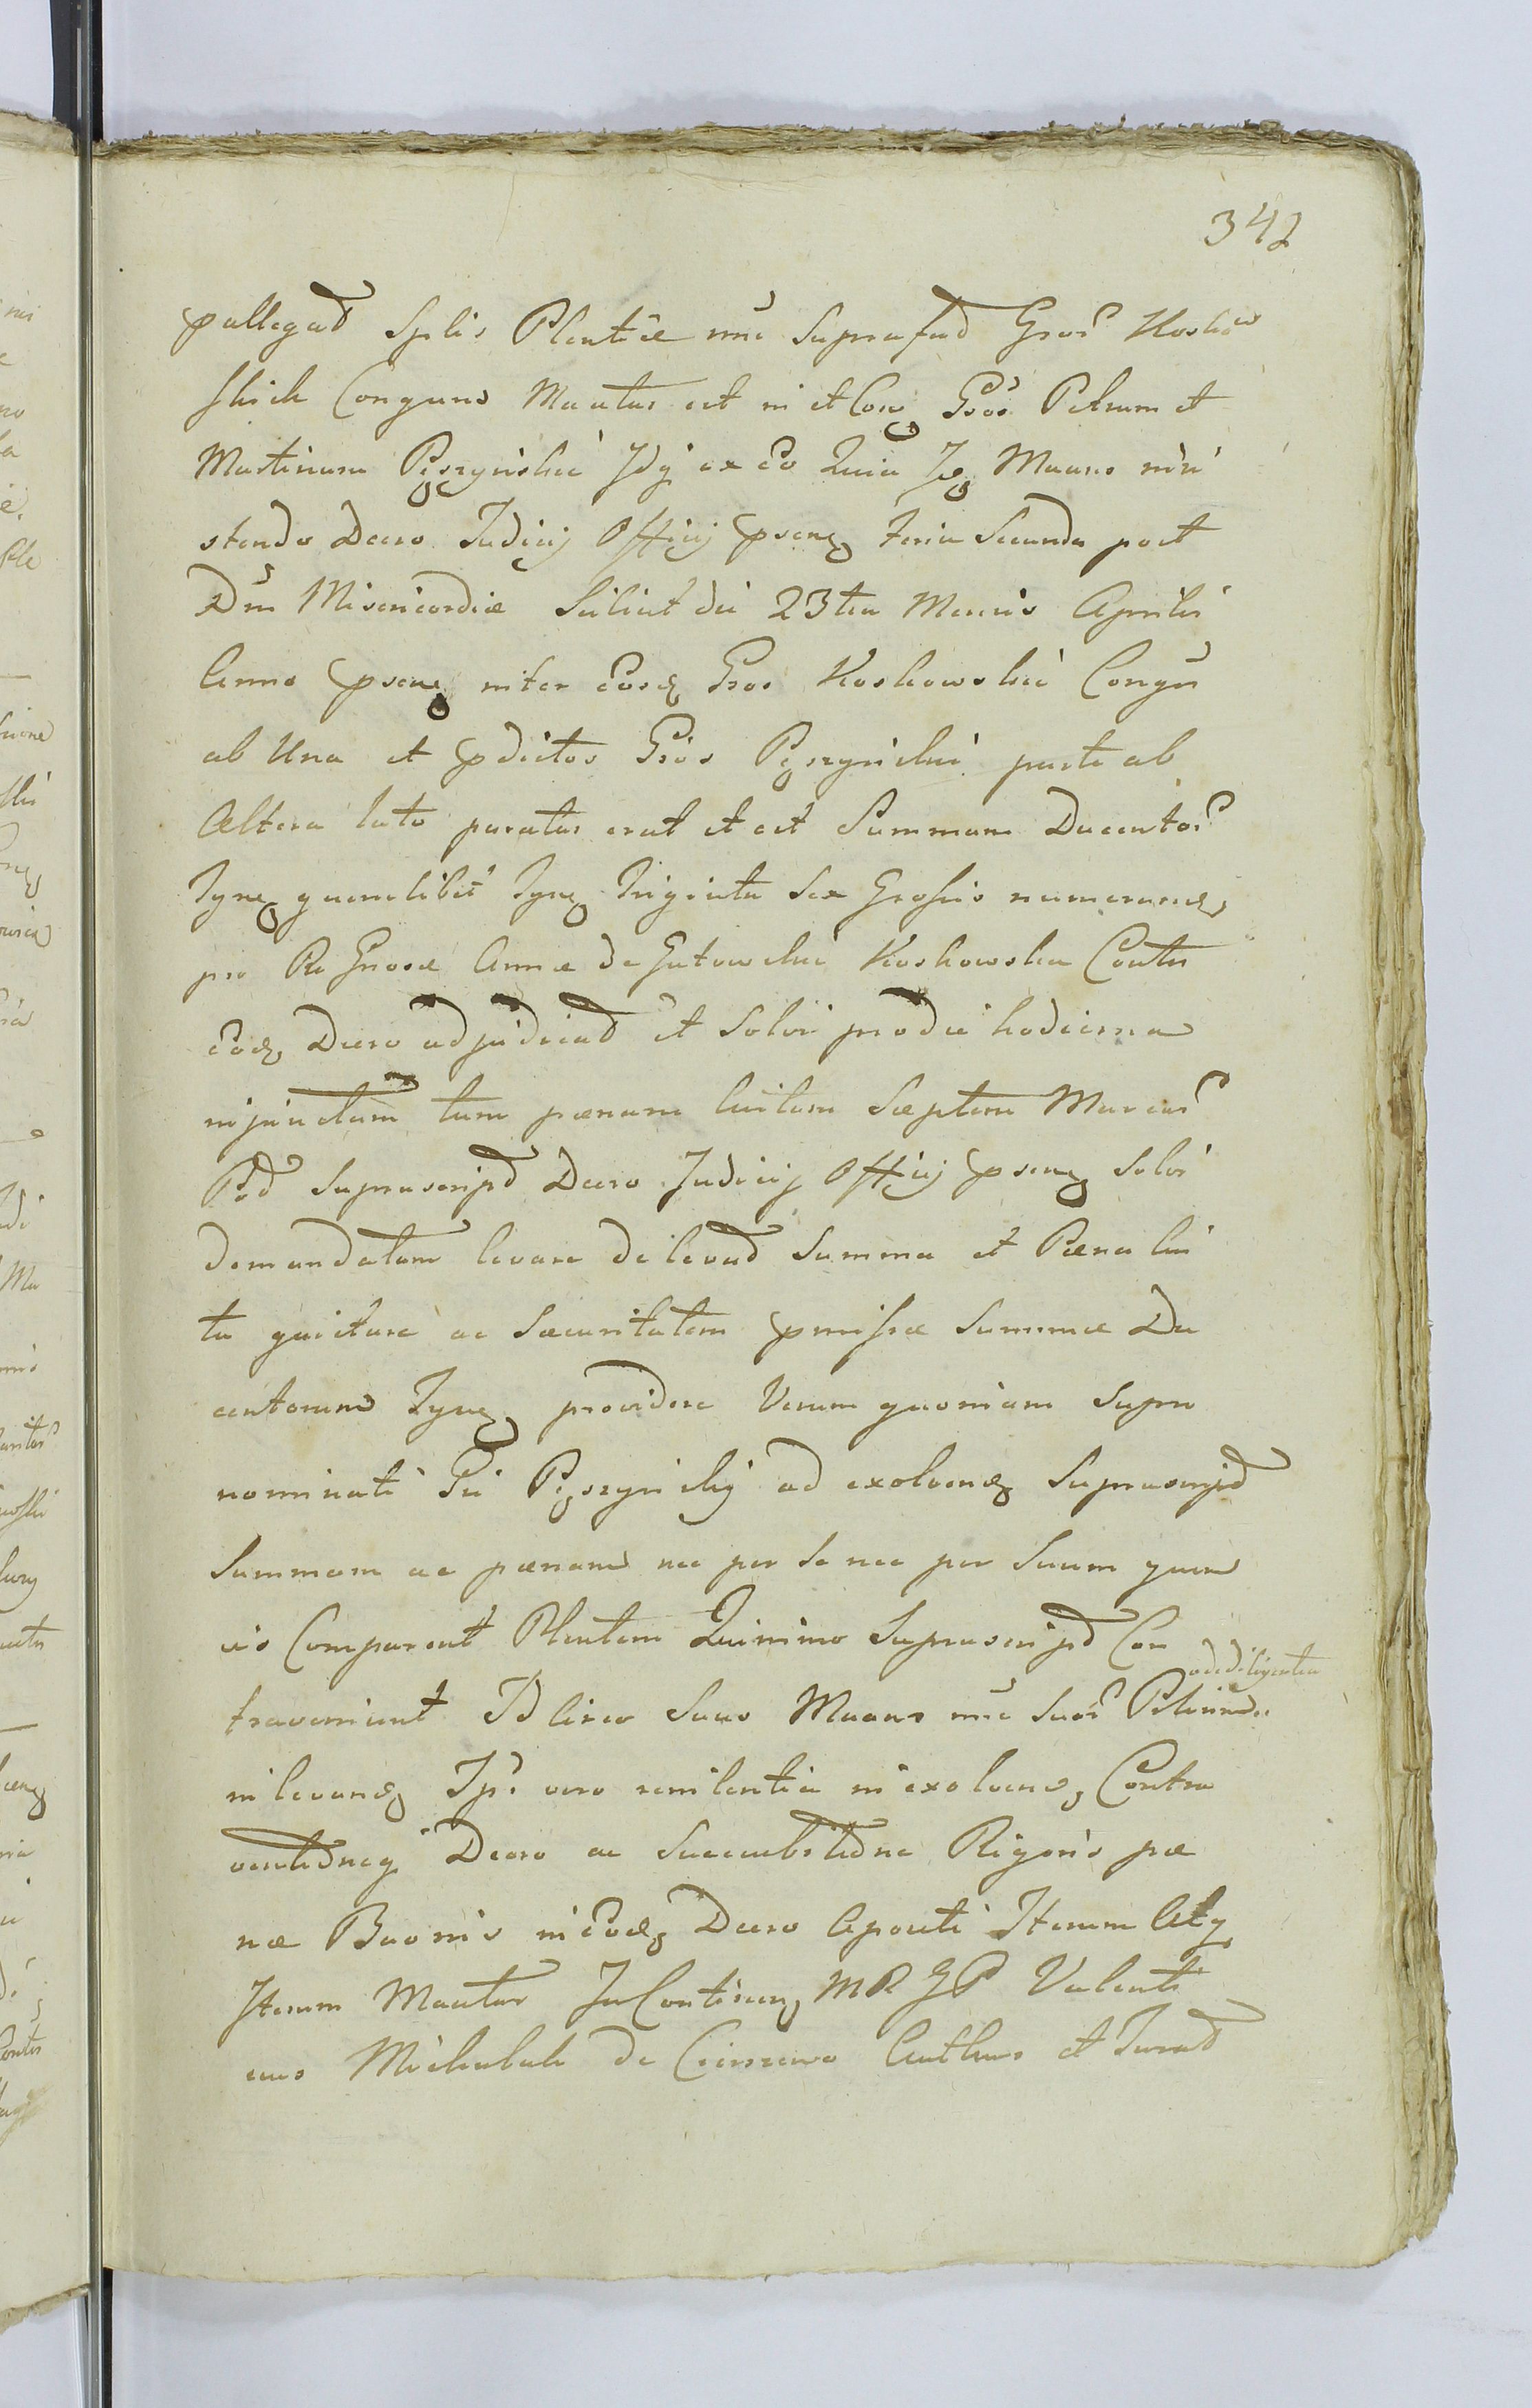 342
pallegad Splis Plentiæ nnē Suprafad Gros Kosko
skich Conguno Mantus est in et Cosq Gros Petrum et
Martinum Pęszyński Idq ex Eo Quia Ipse Manns nīni
stendo Decro Judicij Officij psenq feria Secunda post
Dnī Misericordiæ Scilicet die 23tia Mensis Aprilis
Anno psenq inter Eosq Gros Koskowskie Congū
ab Una et pdictos Gros Pęszyński parte ab
Altera lato paratus erat et est Summam Ducentor
Tynq quemlibet Tynq Triginta Sex Grossis numerando
pro Re Gnosæ Annæ de Gutowskie Koskowska Contr
eodq Decro adjudicad et Solvi pro die hodierna
injunctam tum pœnam luitam Septem Marcar
Pod suprascripd Decro Judicij Officij psenq Solvi
demandatam levare de levad Summa et Pœna lui
ta quietare ac Securitatem pmissæ Summæ Du
centorum Tynq providere Verum quoniam Supra
nominati Gsi Pęszynscij ad exolvendq Suprascripd
Summam ac pœnam nec per Se nec per Suum quem
vis Comparent Plentem Quinimo Suprascripd Con
traveniunt Idcirco Suus Manns nnē Suor Plcium ad diligentia
in levandq Ipsi vero renitentia in exolvendq Contra
ventdneq Decro ac Succubitdne Rigoris pœ
næ Baonis in Eodq Decro Apositi Iterum Atq
Iterum Mantur In Continenq MRGP Valenti
enus Michalak de Cieszewo Authens et Jurad